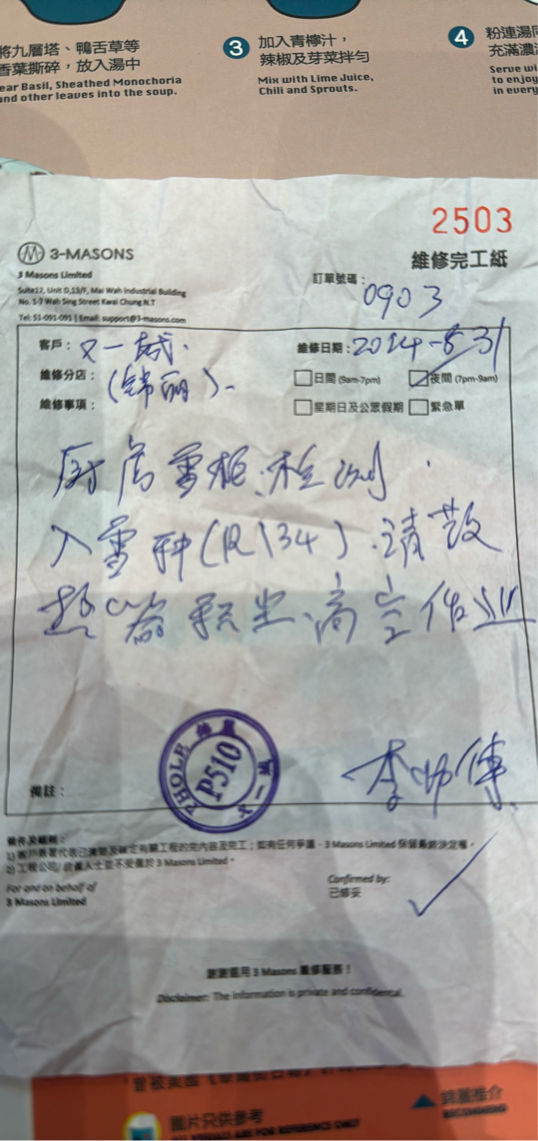 將九層塔、鴨舌草等
香葉撕碎，放入湯中
ear Basil, Sheathed Monochoria
and other leaves into the soup.
3 加入青檸汁，
辣椒及芽菜拌勻
Mix with Lime Juice,
Chili and Sprouts.
4 粉連湯
充滿濃
Serve wi
to enjoy
in every
2503
3-MASONS
維修完工紙
3 Masons Limited
Suite12, Unit D,13/F, Mai Wah Industrial Building
No. 1-7 Wah Sing Street Kwai Chung N.T
Tel: 51-091-091 | Email: support@3-masons.com
訂單號碼：
0903
客戶：又一城.
維修日期：2024-8-31
維修分店：(錦丽).
日間 (9am-7pm) 夜間 (7pm-9am)
維修事項：
星期日及公眾假期 緊急單
厨房雪柜.检测.
入雪种(R134).请散
热器积尘.高空作业
PHOLE
P510
又一城
李师傅
備註：
條件及細則：
1) 客戶簽署代表已清楚及確定有關工程的完內容及完工；如有任何爭議，3 Masons Limited 保留最終決定權。
For and on behalf of
3 Masons Limited
Confirmed by:
已修妥
謝謝選用 3 Masons 維修服務！
Disclaimer: The information is private and confidential.
圖片只供參考
ALL VISUALS ARE FOR REFERENCE ONLY
錦麗推介
RECOMMEND